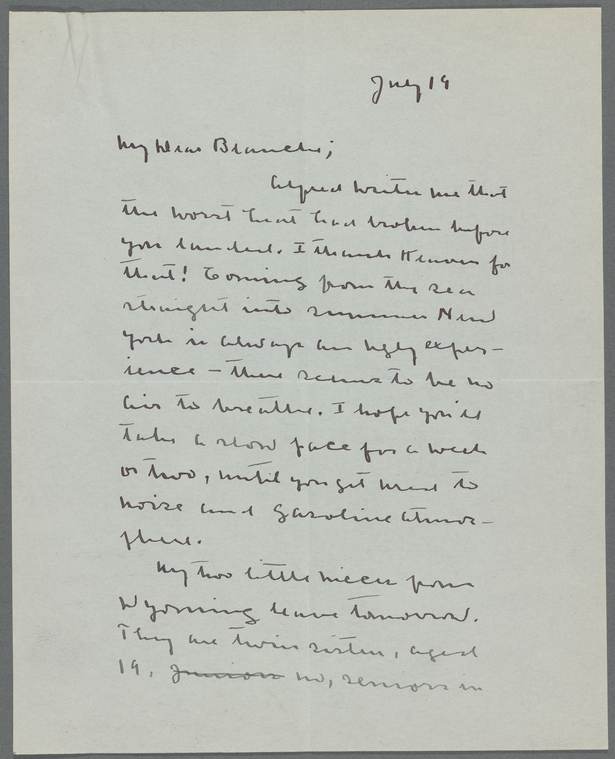 July 19
My Dear Blanche;
Alfred writes me that
the worst heat had broken before
you landed. I thank Heaven for
that! Coming from the sea
straight into summer New
York is always an ugly exper-
ience - there seems to be no
air to breathe. I hope you'll
take a slow pace for a week
or two, until you get used to
noise and gasoline atmos-
phere.
My two little nieces from
Wyoming leave tomorrow.
They are twin sisters, aged
19, Juniors no, seniors in